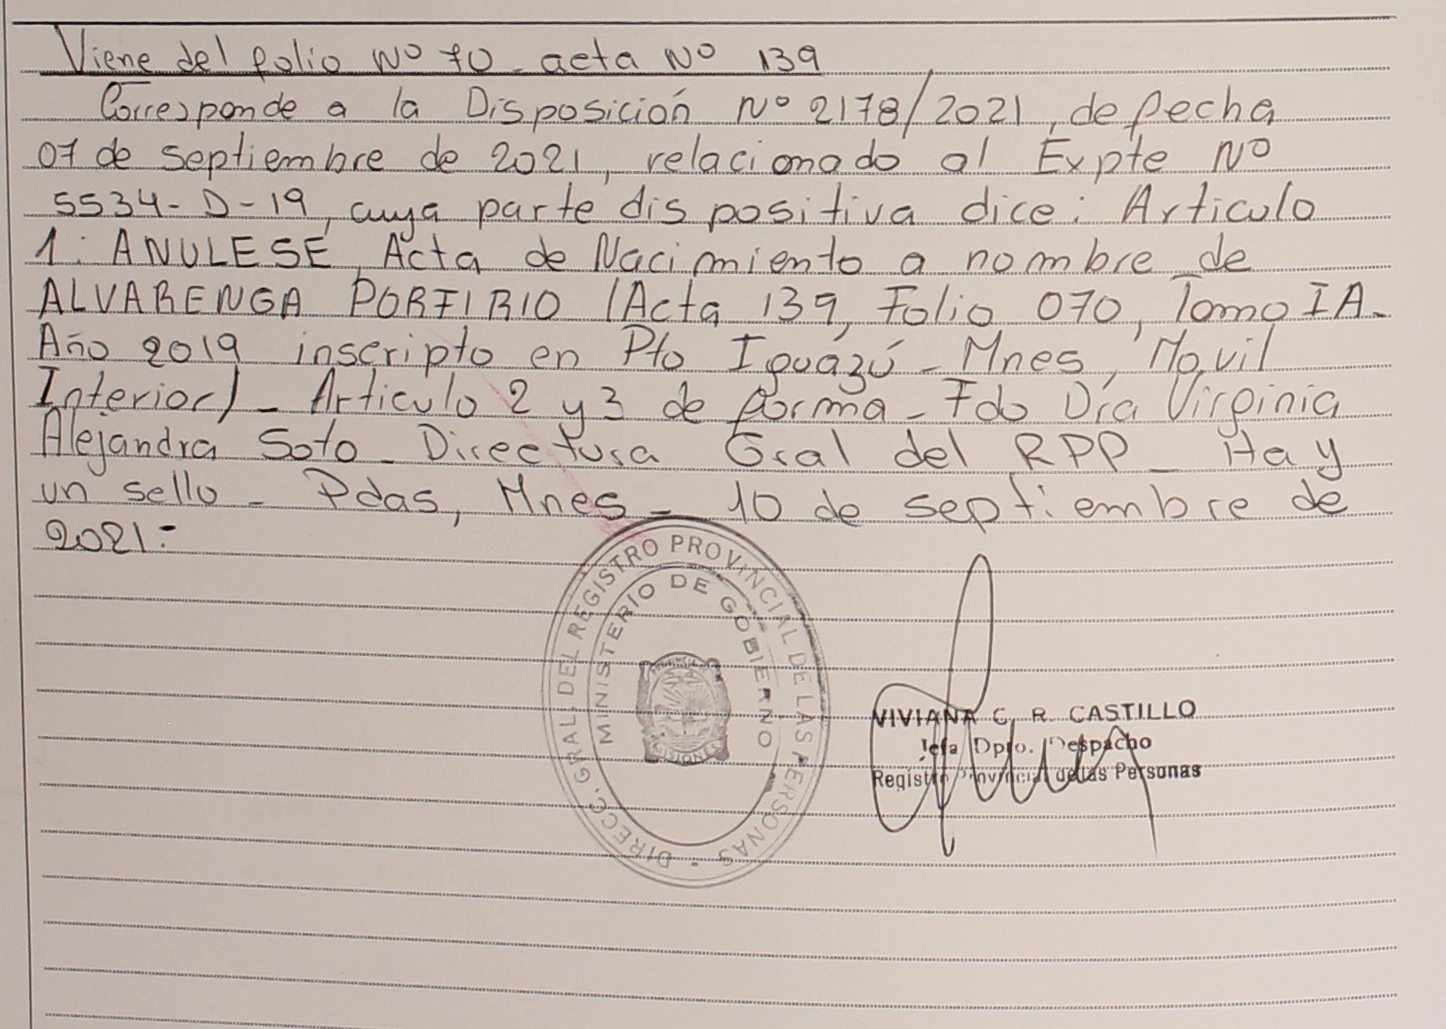 Viene del folio Nº 70 - acta Nº 139
Corresponde a la Disposición Nº 2178/2021, de fecha
07 de septiembre de 2021, relacionado al Expte Nº
5534-D-19, cuya parte dispositiva dice: Articulo
1: ANULESE, Acta de Nacimiento a nombre de
ALVARENGA PORFIRIO (Acta 139, Folio 070, Tomo IA-
Año 2019 inscripto en Pto Iguazú - Mnes, Movil
Interior) - Articulo 2 y 3 de forma - Fdo Dra Virginia
Alejandra Soto - Directora Gral del RPP - Hay
un sello - Pdas, Mnes - 10 de septiembre de
2021:-
DIRECC. GRAL. DEL REGISTRO PROVINCIAL DE LAS PERSONAS -
MINISTERIO DE GOBIERNO
MISIONES
VIVIANA C. R. CASTILLO
Jefa Dpto. Despacho
Registro Provincial de las Personas